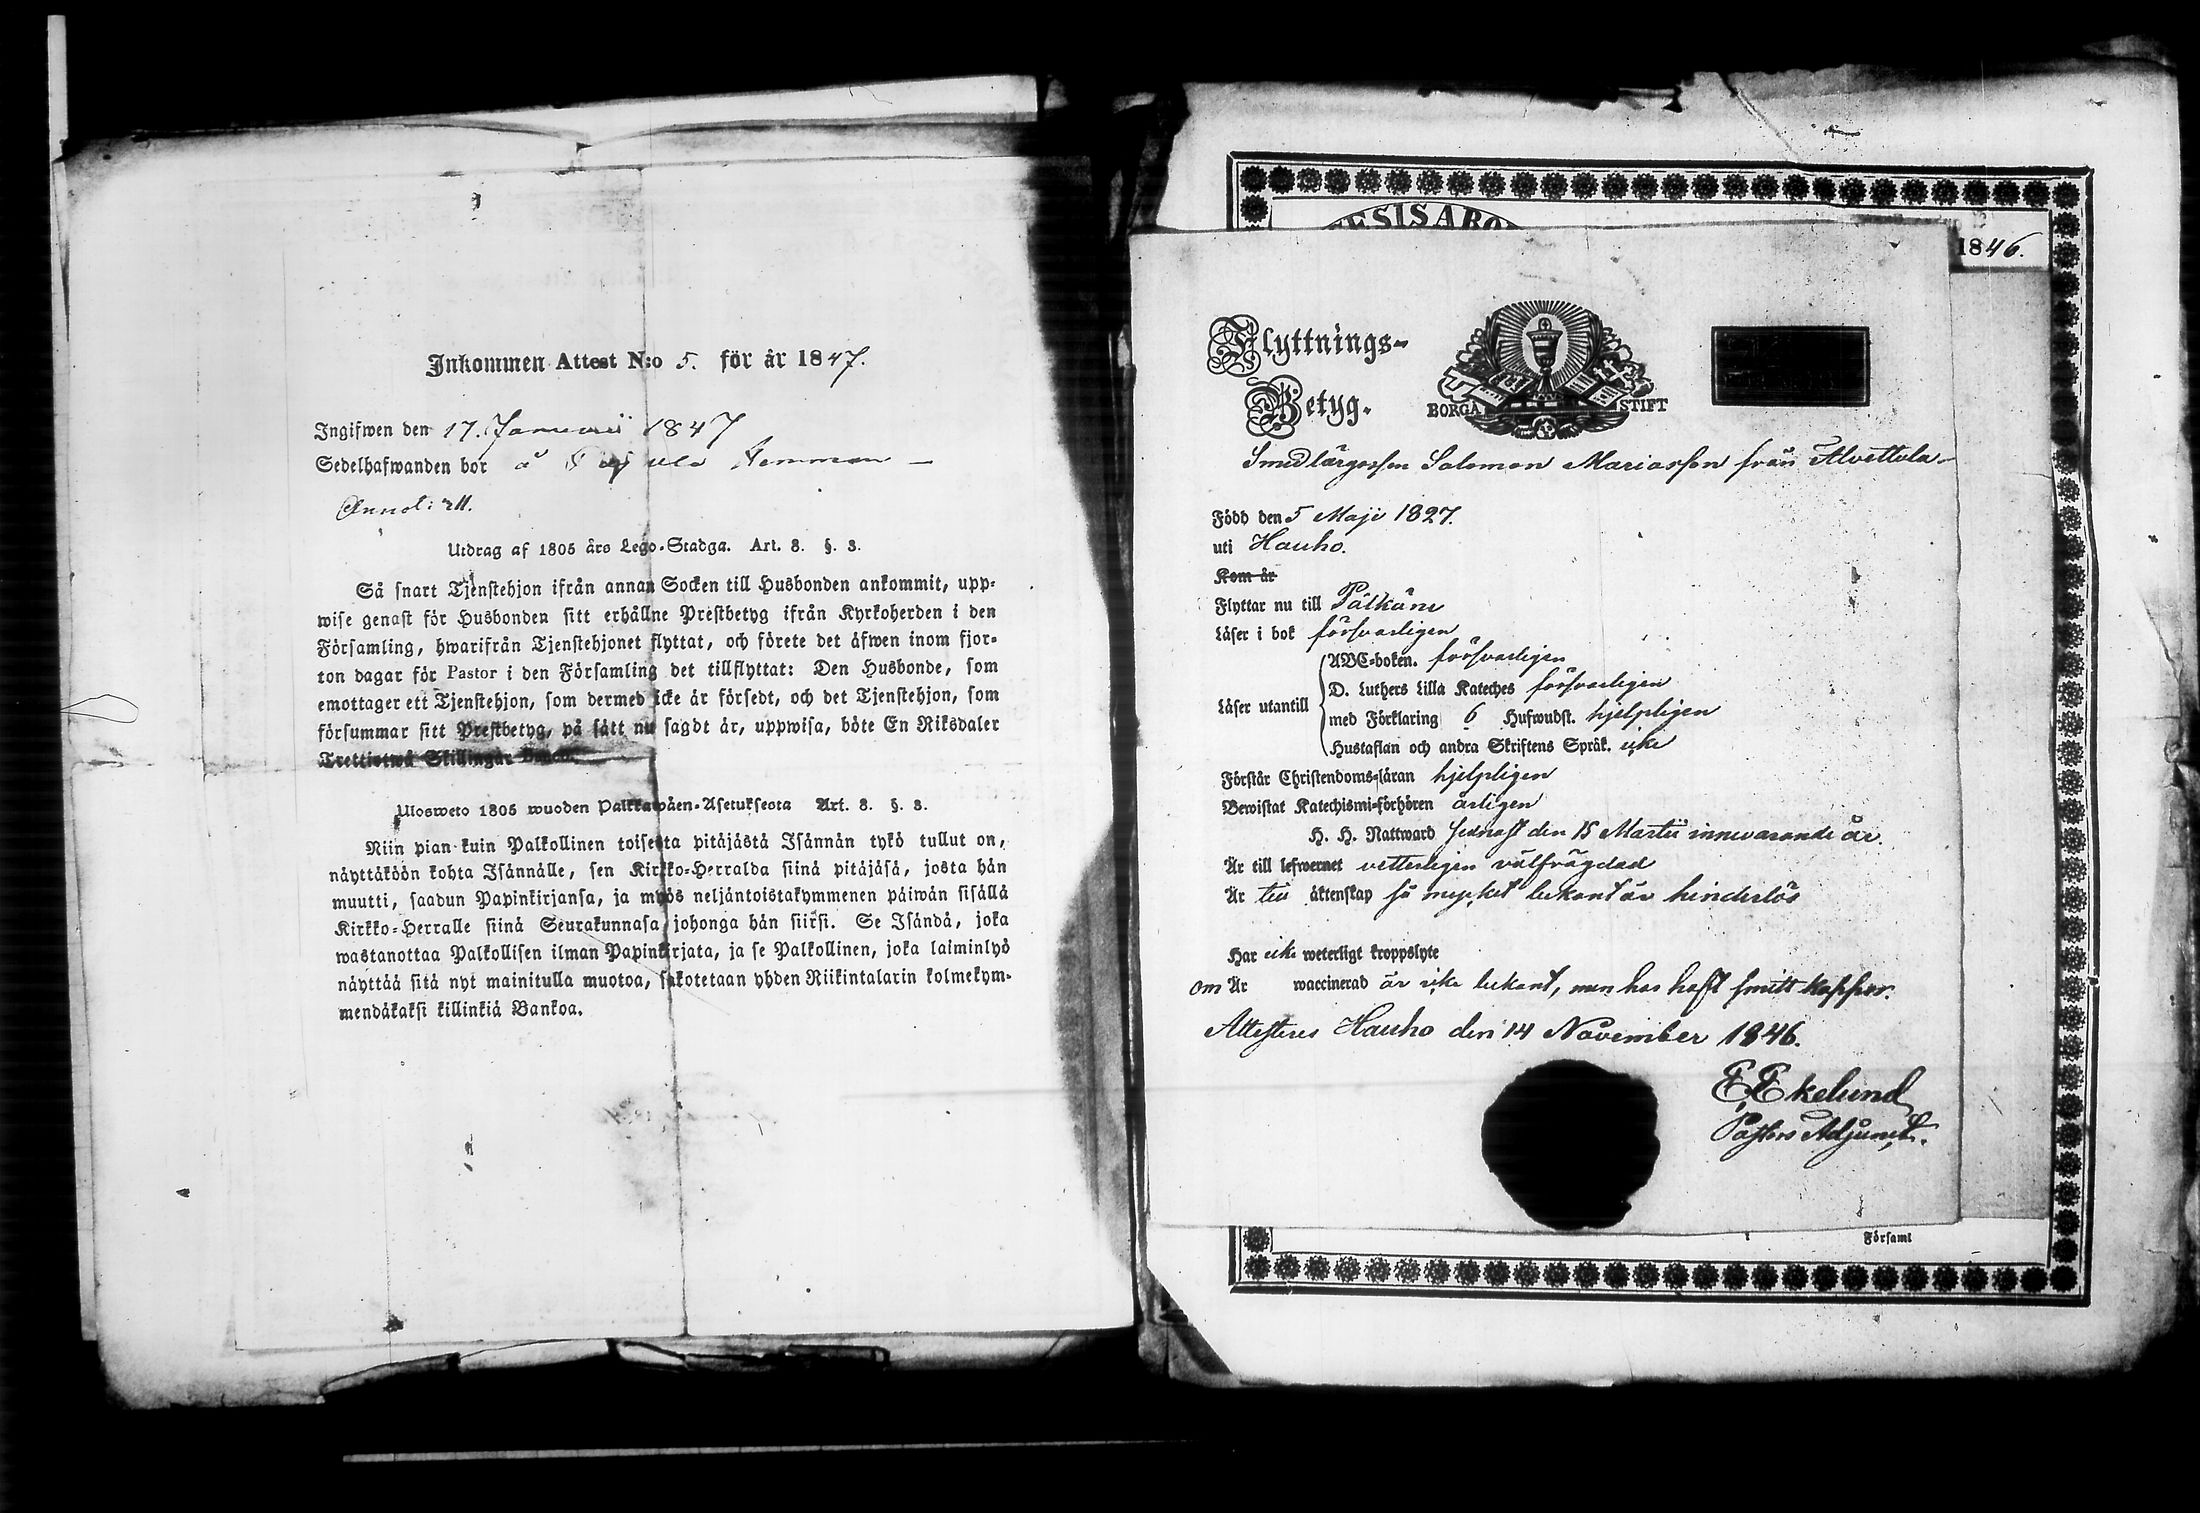 Inkommen Attest N:o 5. för år 1847.
Ingifwen den 17. Januarii 1847
Sedelhafwanden bor å Hemman
Annot: 
Utdrag af 1805 års Lego-Stadga. Art. 8. §. 3.
Så snart Tjenstehjon ifrån annan Socken till Husbonden ankommit, upp-
wise genast för Husbonden sitt erhållne Prestbetyg ifrån Kyrkoherden i den
Församling, hwarifrån Tjenstehjonet flyttat, och förete det äfwen inom fjor-
ton dagar för Pastor i den Församling det tillflyttat: Den Husbonde, som
emottager ett Tjenstehjon, som dermed icke är försedt, och det Tjenstehjon, som
försummar sitt Prestbetyg, på sätt nu sagdt är, uppwisa, böte En Riksdaler
Trettiotwå Skillingar Banco.
Ulosweto 1805 wuoden Palkkawäen-Asetuksesta Art. 8. §. 3.
Niin pian kuin Palkollinen toisesta pitäjästä Isännän tykö tullut on,
näyttäköön kohta Isännälle, sen Kirkko-Herralda siinä pitäjäsä, josta hän
muutti, saadun Papinkirjansa, ja myös neljäntoistakymmenen päiwän sisällä
Kirkko-Herralle siinä Seurakunnasa johonga hän siirsi. Se Isändä, joka
wastanottaa Palkollisen ilman Papinkirjata, ja se Palkollinen, joka laiminlyö
näyttää sitä nyt mainitulla muotoa, sakotetaan yhden Riikintalarin kolmekym-
mendäkaksi killinkiä Bankoa.
ESISABO
1846.
Flyttnings-
Betyg.
BORGÅ STIFT
Smedlärgossen Salomon Mariasson från Alvettula
Född den 5 Maji 1827.
uti Hauho.
Kom år
Flyttar nu till Pälkäne
Läser i bok försvarligen
Läser utantill
ABC-boken. försvarligen
D. Luthers Lilla Kateches försvarligen
med Förklaring 6 Hufwudst. hjelpligen
Hustaflan och andra Skriftens Språk. icke
Förstår Christendoms-läran hjelpligen
Bewistat Katechismi-förhören årligen
H. H. Nattward sednast den 15 Martii innevarande år.
Är till lefwernet vetterligen välfrägdad
Är till äktenskap så mycket bekant är hinderlös
Har icke weterligt kroppslyte
om Är waccinerad är icke bekant, men har haft smittkoppor.
Attesteras Hauho den 14 November 1846.
E. Ekelund
Pastors Adjunct.
Församl